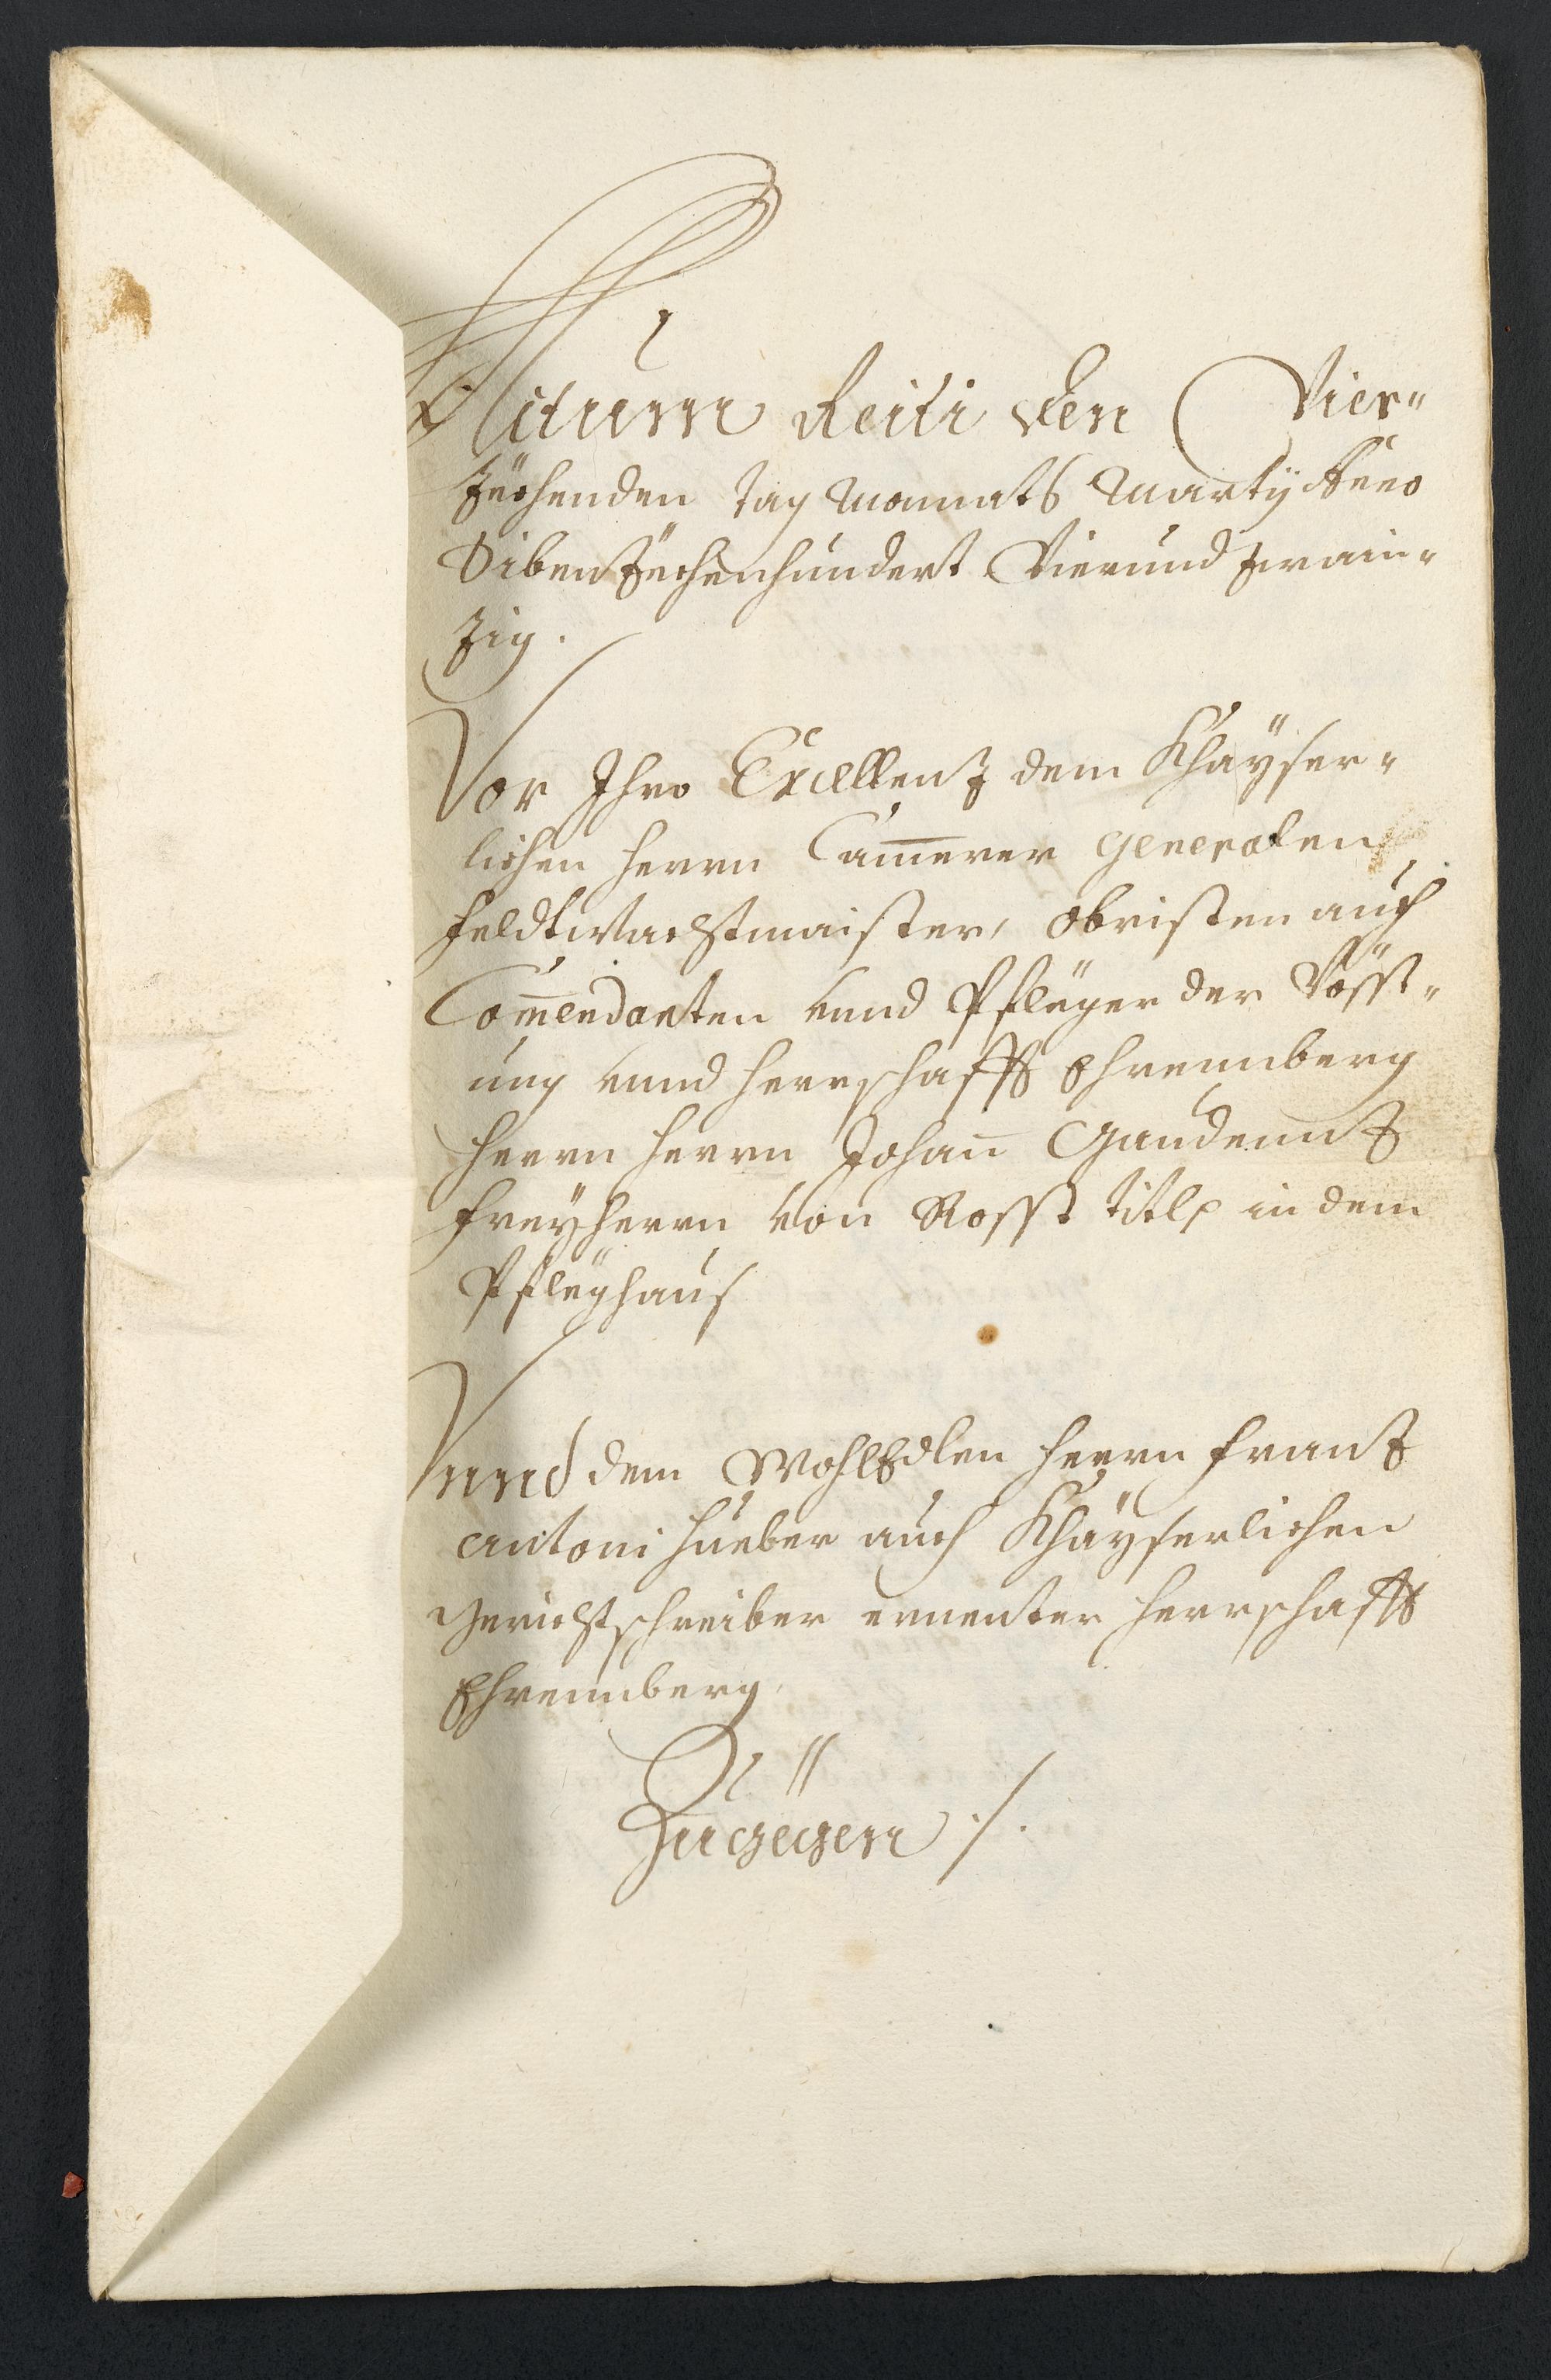 Actum Reiti den Vier-
zechenden tag Monnats Martÿ Anno
Sibenzechenhundert Vierundzwain-
zig.
Vor Ihro Excellenz dem Khaÿser-
lichen herrn Cam̅erer Generalen
Feldtwachtmaister, Obristen auch
Com̅endanten vnnd Pfleger der Vösst-
ung vnnd Herrschafft Ehrennberg
Herrn Herrn Johan̅ Gaudennz
Freÿherrn von Rosst titlp in dem
Pfleghaus
Vnnd dem WohlEdlen herrn Franz
Antoni Hueber auch Khaÿserlichen
Gerichtschreiber ernenter Herrschafft
Ehrennberg.
Zugegen ./.